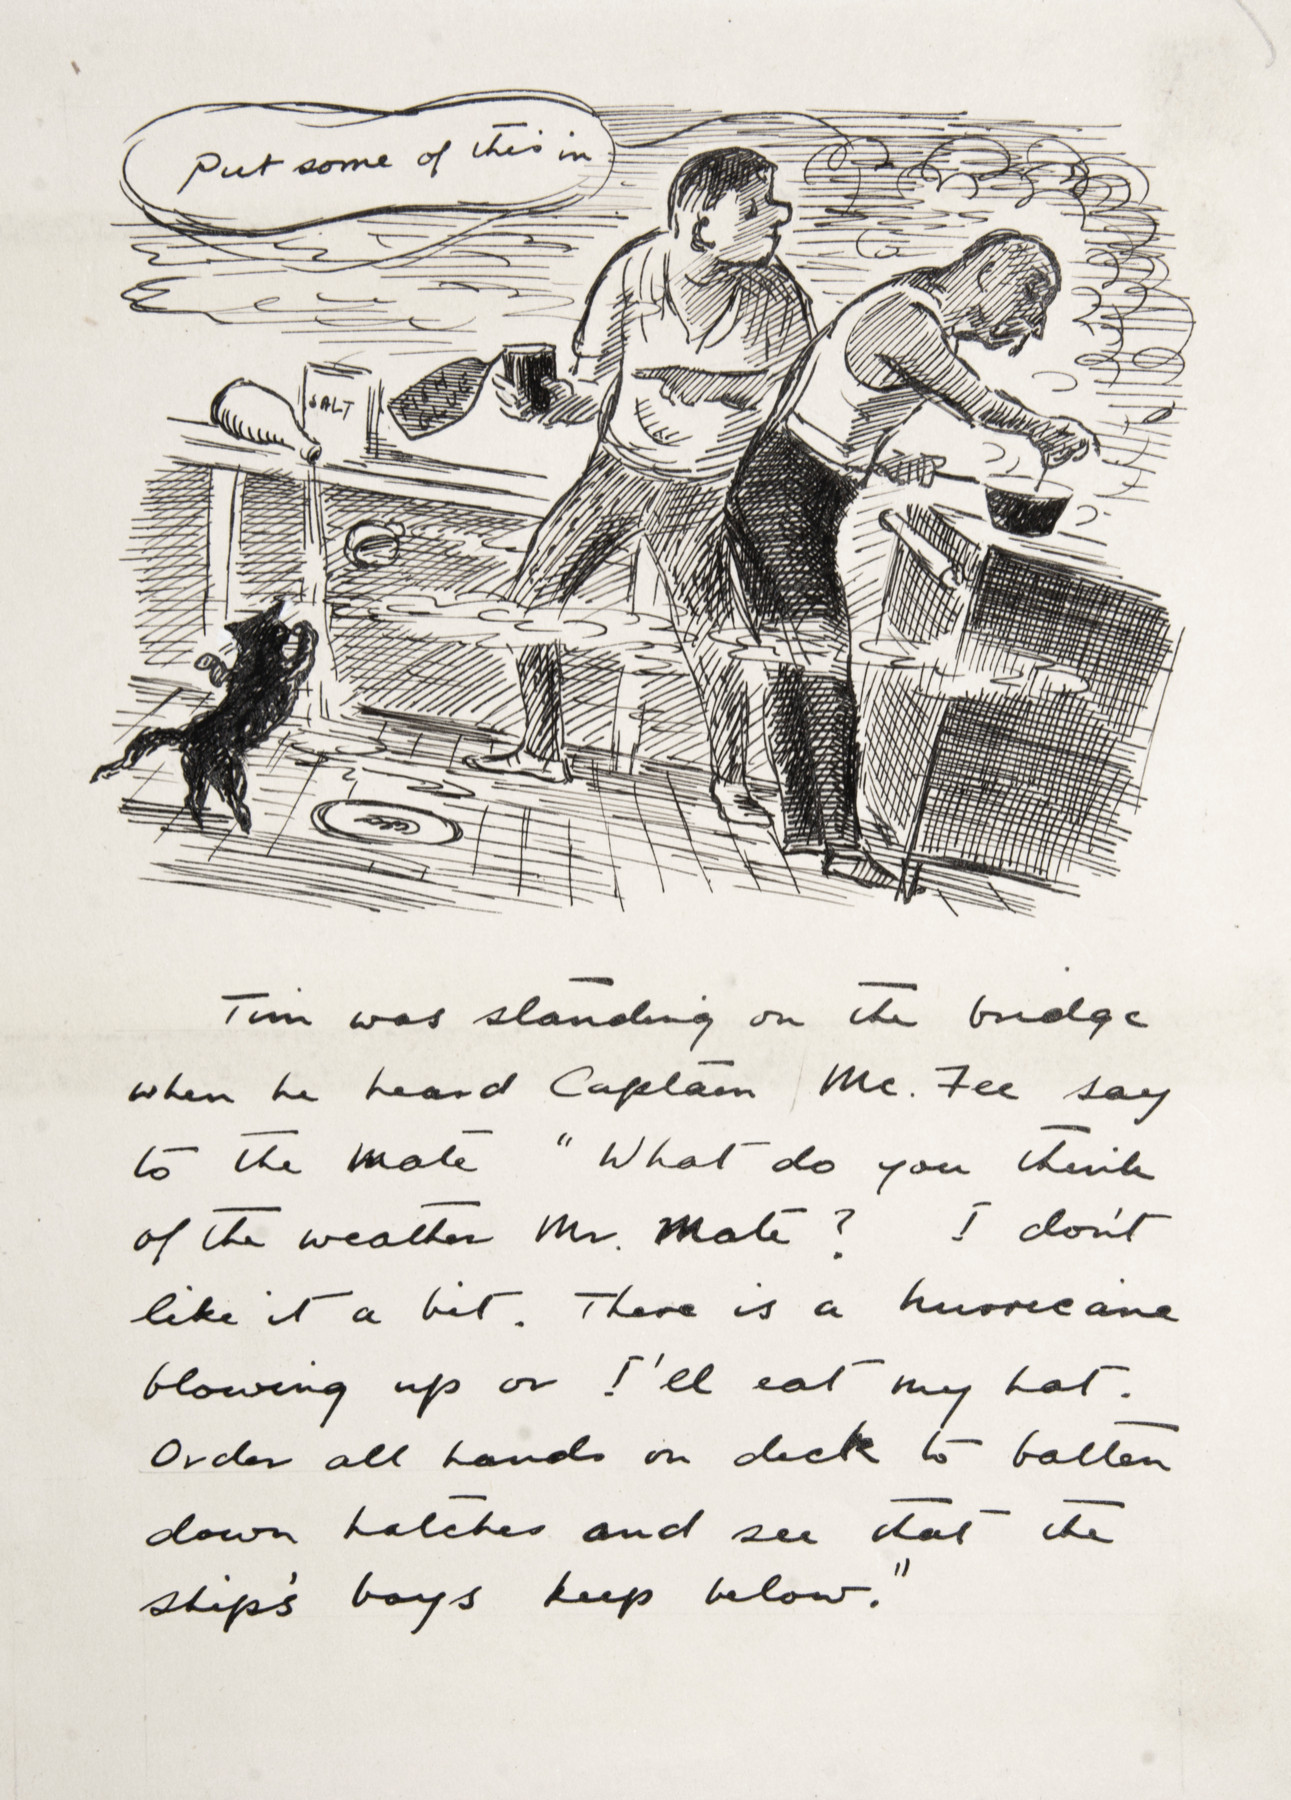 Put some of this in
SALT
FISH
GLUE
Tim was standing on the bridge
when he heard Captain Mc. Fee say
to the Mate "What do you think
of the weather Mr. Mate? I don't
like it a bit. There is a hurricane
blowing up or I'll eat my hat.
Order all hands on deck to batten
down hatches and see that the
ship's boys keep below."